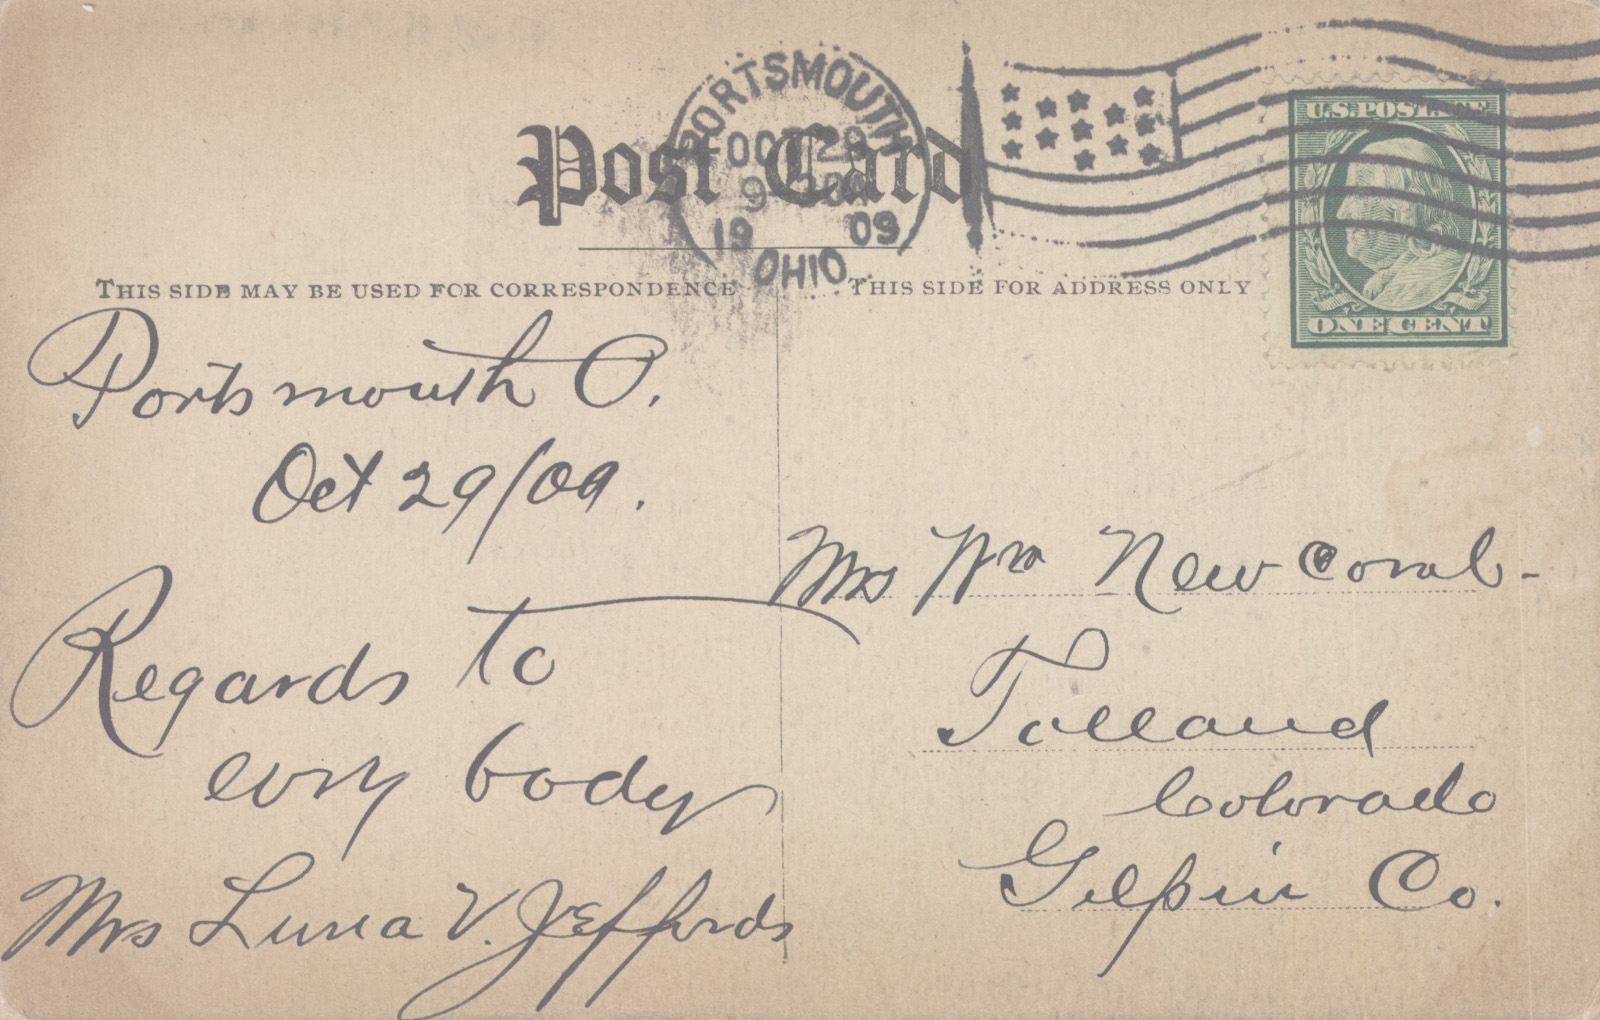 PORTSMOUTH
OCT 29
9
1909
OHIO
Post Card
U.S. POSTAGE
ONE CENT
THIS SIDE MAY BE USED FOR CORRESPONDENCE
THIS SIDE FOR ADDRESS ONLY
Portsmouth O.
Oct 29/09.
Regards to
evry body
Mrs Luna V. Jeffords
Mrs Wm Newcomb-
Tolland
Colorado
Gilpin Co.